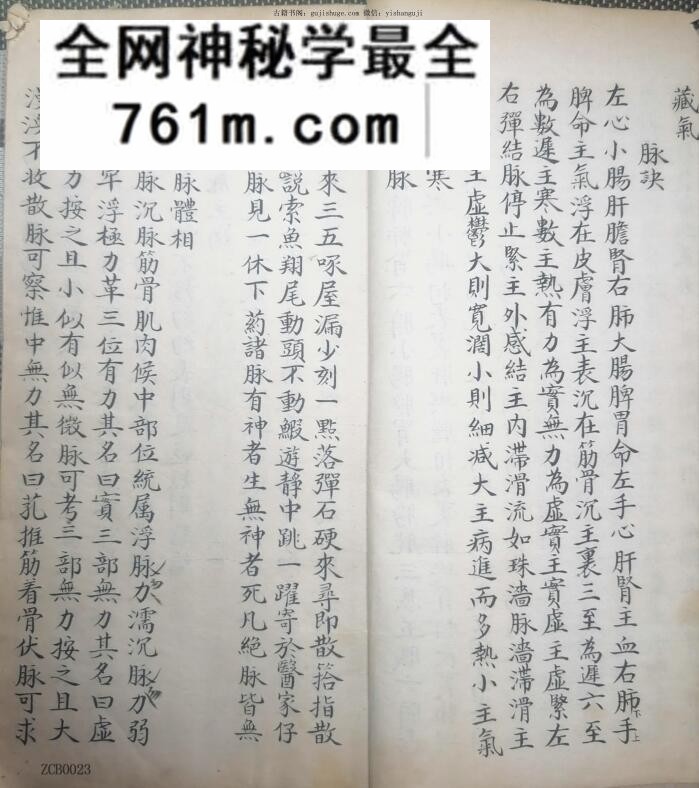 古籍书阁：gujishuge.com 微信：yishanguji
全网神秘学最全
761m.com
藏氣
脉訣
左心小腸肝膽腎右肺大腸脾胃命左手心肝腎主血右肺手下上
脾命主氣浮在皮膚浮主表沉在筋骨沉主裏三至為遲六至
為數遲主寒數主熱有力為實無力為虛實主實虛主虛緊左
右彈結脉停止緊主外感結主内滞滑流如珠濇脉濇滞滑主
主虛鬱大則寬濶小則細减大主病進而多熱小主氣
寒
脉
來三五啄屋漏少刻一點落彈石硬來尋即散筨指散
説索魚翔尾動頭不動鰕遊静中跳一躍寄於醫家仔
脉見一休下葯諸脉有神者生無神者死凡絶脉皆無
脉體相
脉沉脉筋骨肌肉候中部位統属浮脉力濡沉脉力弱
牢浮極力革三位有力其名曰實三部無力其名曰虛
力按之且小似有似無微脉可考三部無力按之且大
浮不收散脉可察惟中無力其名曰芤推筋着骨伏脉可求
ZCB0023